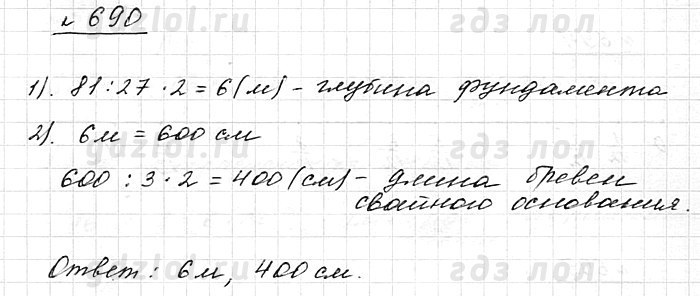 № 690
1). 81 : 27 · 2 = 6 (м) - глубина фундамента
2). 6м = 600 см
600 : 3 · 2 = 400 (см) - длина бревен
свайного основания.
Ответ: 6м, 400 см.
gdzlol.ru гдз лол
gdzlol.ru гдз лол
gdzlol.ru гдз лол
gdzlol.ru гдз лол